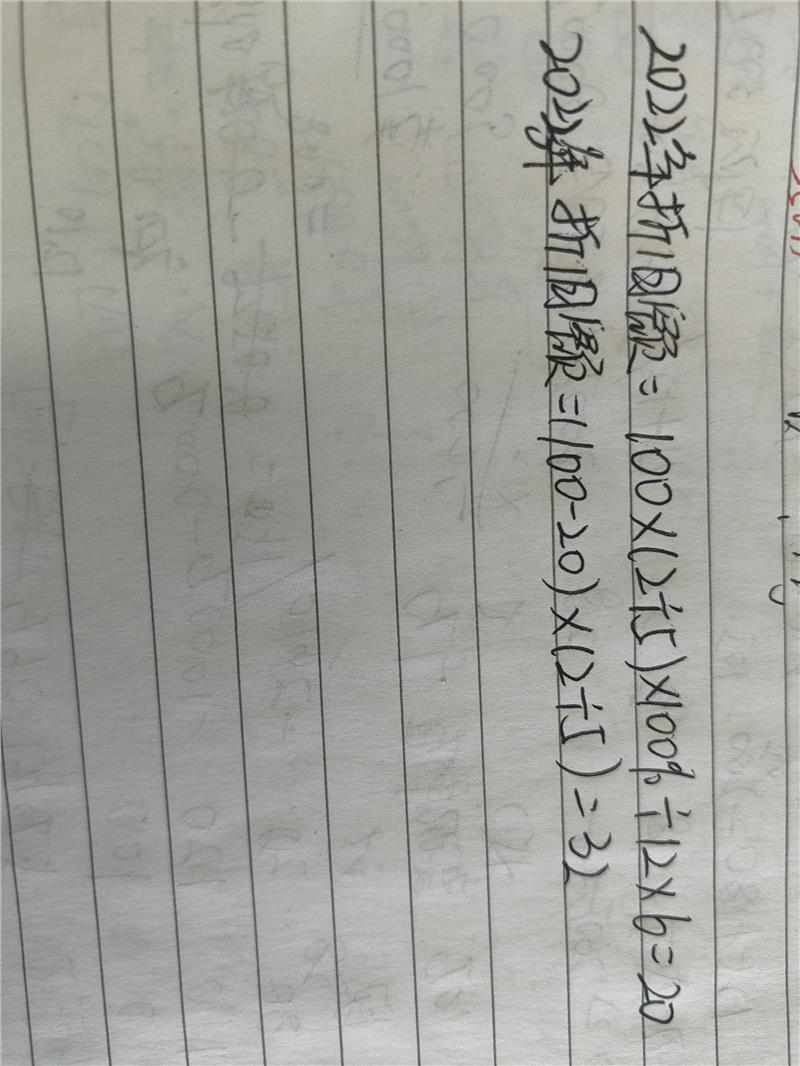 2022年折旧额=100×(2÷5)×100%÷12×6=20
2023年折旧额=(100-20)×(2÷5)=32